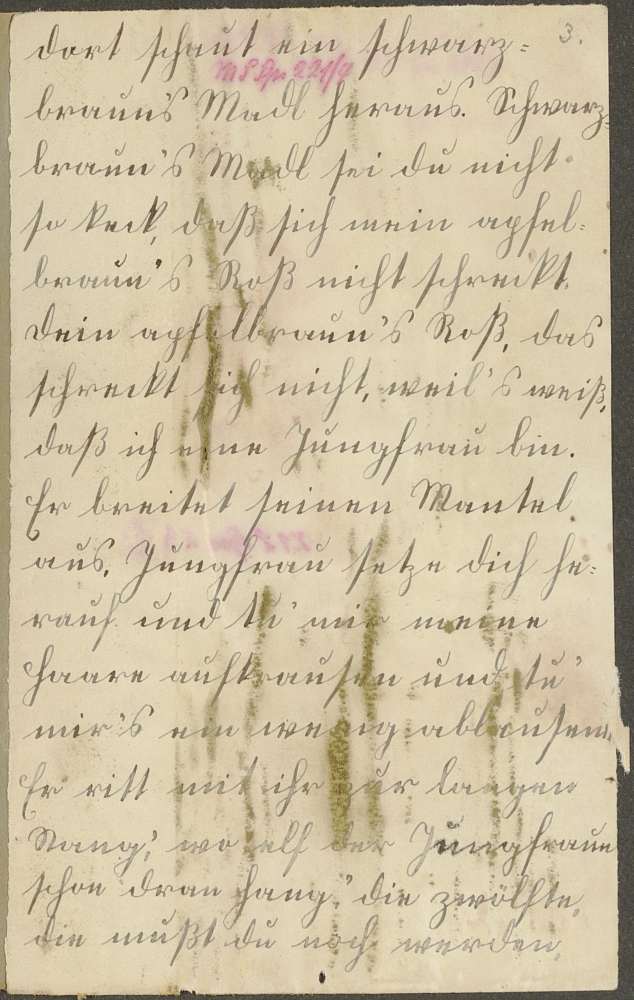 3.
dort schaut ein schwarz=
braun's Madl heraus. Schwarz=
braun's Madl sei du nicht
so keck, daß sich mein apfel=
braun's Roß nicht schreckt.
Dein apfelbraun's Roß, das
schreckt sich nicht, weil's weiß,
daß ich eine Jungfrau bin.
Er breitet seinen Mantel
aus, Jungfrau setze dich he=
rauf und tu' mir meine
Haare aufkrausen und tu'
mir's ein wenig ablausen.
Er ritt mit ihr zur langen
Stang', wo elf der Jungfraun
schon dran hang', die zwölfte,
die mußt du noch werden,